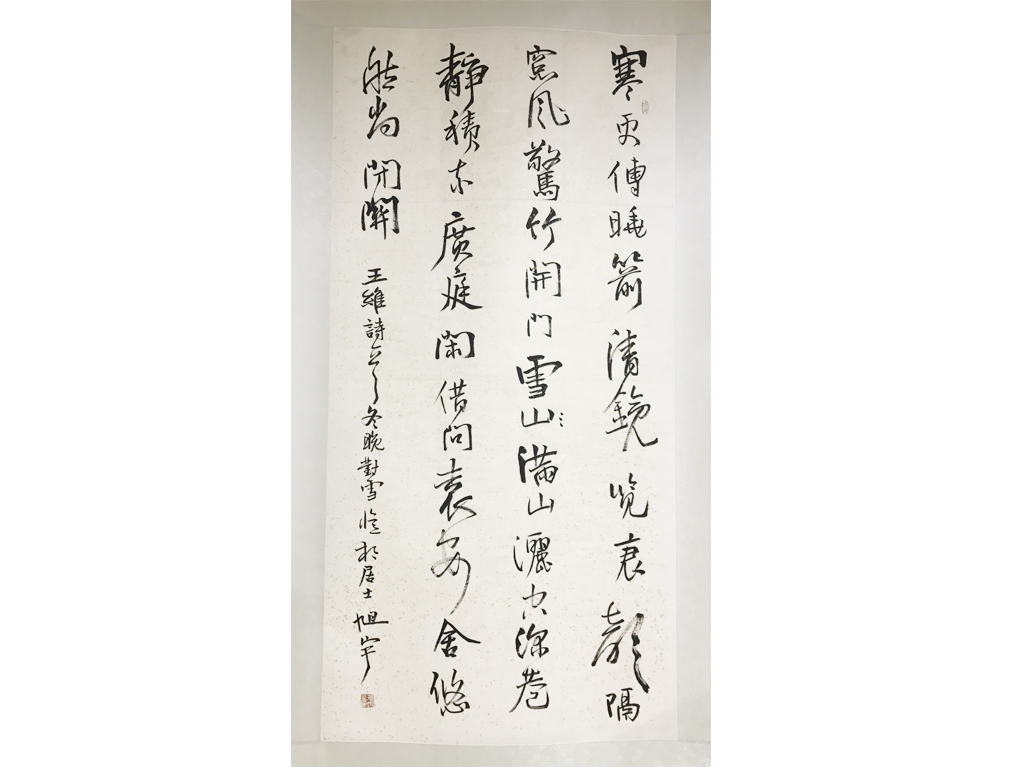 寒更傳曉箭清鏡覽衰顏隔
窓風驚竹開門雪山滿山灑空深巷
靜積素廣庭閑借問袁安舍悠
然尚閉關 王維詩 冬晚對雪憶 居士 旭宇